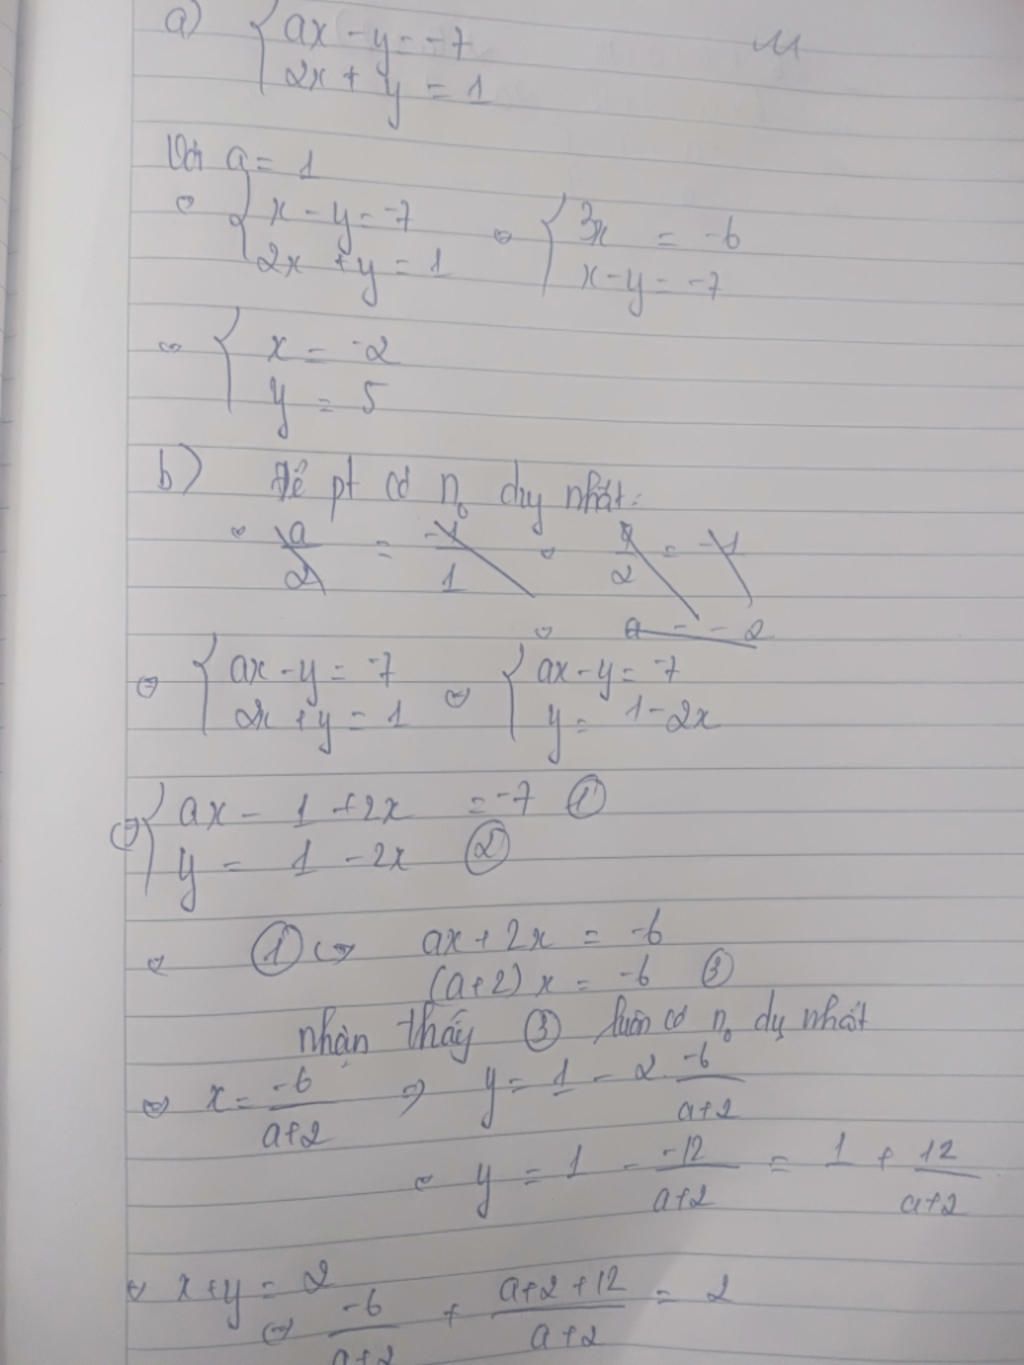 a) { ax - y = -7
2x + y = 1
Với a = 1
⇔ { x - y = -7 ⇔ { 3x = -6
2x + y = 1 x - y = -7
⇔ { x = -2
y = 5
b) Để pt có n₀ duy nhất:
⇔ a/2 = -1/1 ⇔ a/2 = -1
⇔ a = -2
⇔ { ax - y = -7 ⇔ { ax - y = -7
2x + y = 1 y = 1 - 2x
⇔ { ax - 1 + 2x = -7 ①
y = 1 - 2x ②
⇔ ① ⇔ ax + 2x = -6
(a+2) x = -6 ③
nhận thấy ③ luôn có n₀ dy nhất
⇔ x = -6/(a+2) ⇒ y = 1 - 2 . -6/(a+2)
⇔ y = 1 - -12/(a+2) = 1 + 12/(a+2)
⇔ x + y = 2
⇔ -6/(a+2) + (a+2+12)/(a+2) = 2